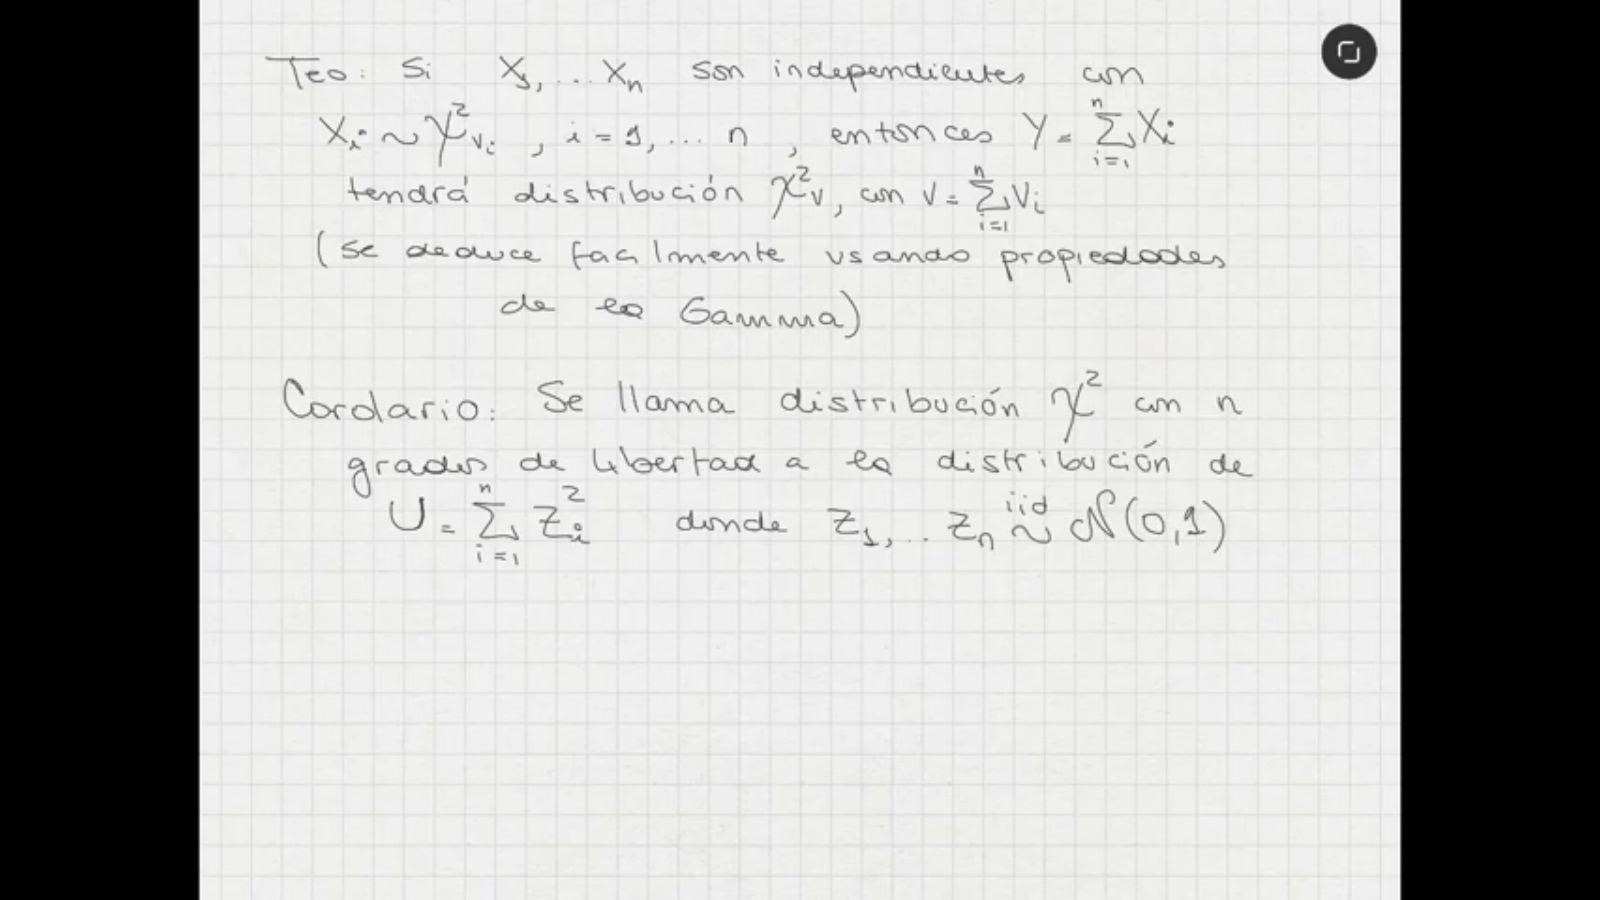 Teo: Si X₁, ... Xₙ son independientes con
Xᵢ ~ χ²_νᵢ , i = 1, ... n , entonces Y = ∑ᵢ₌₁ⁿ Xᵢ
tendrá distribución χ²_ν, con ν = ∑ᵢ₌₁ⁿ νᵢ
(se deduce facilmente usando propiedades
de la Gamma)
Corolario: Se llama distribución χ² con n
grados de libertad a la distribución de
U = ∑ᵢ₌₁ⁿ Zᵢ² donde Z₁, .. Zₙ ~ⁱⁱᵈ N(0,1)